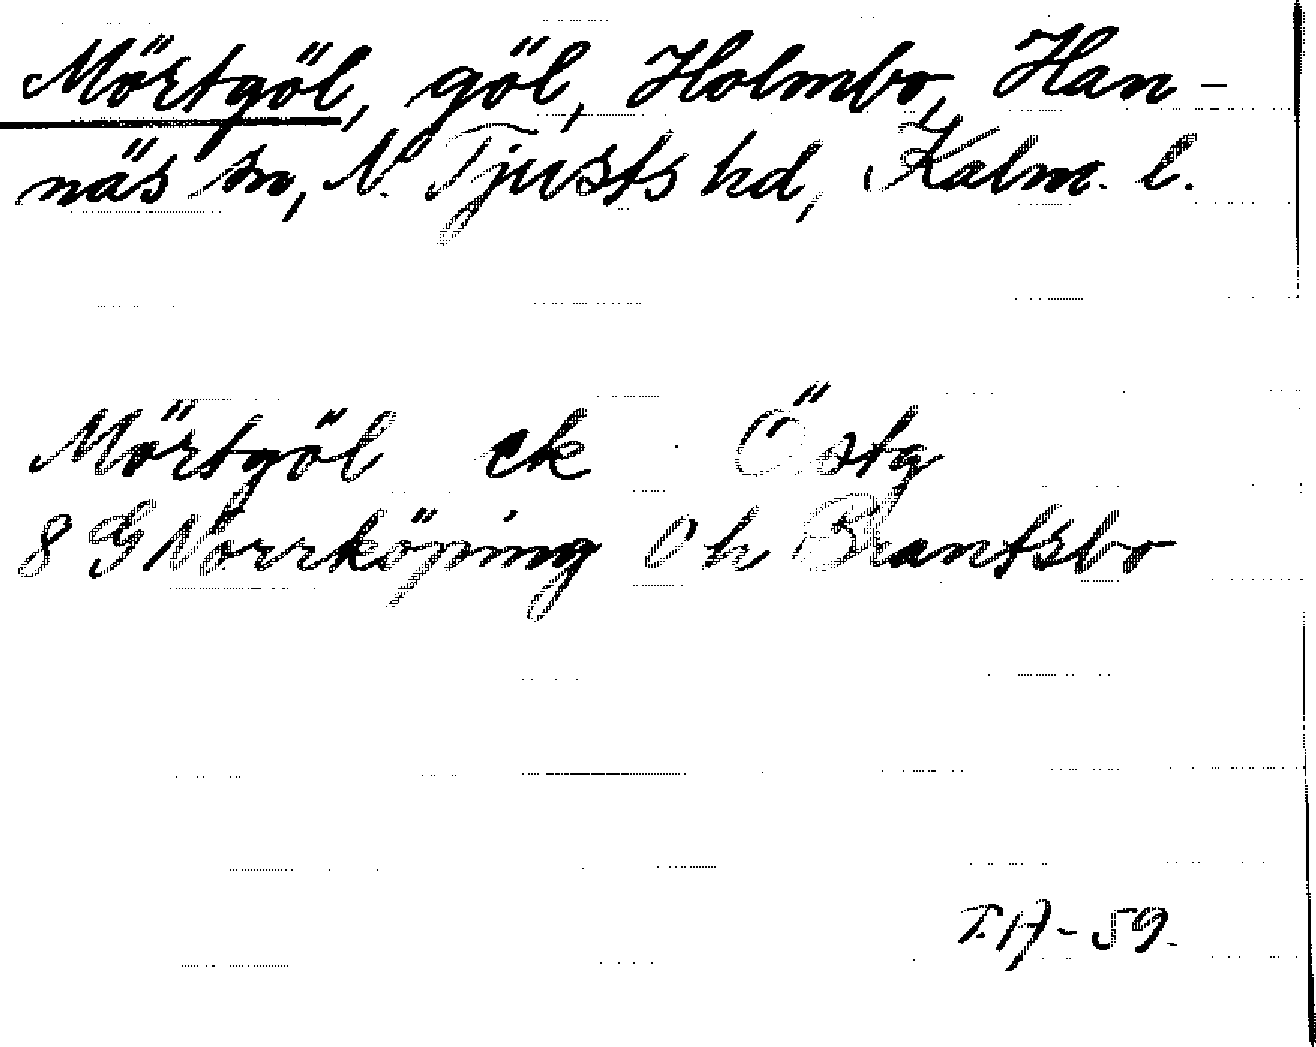 Mörtgöl, göl, Holmbo, Han-
näs sn, N. Tjusts hd, Kalm. l.
Mörtgöl ek Östg
8 G Norrköping 0 h Brantsbo
T.H-59.